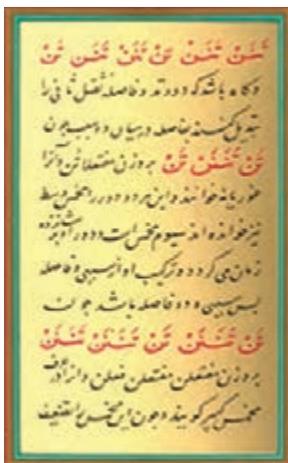 تَنَنْ تَنَنَنْ تَنْ تَنَنْ تَنَنَنْ تَنْ
و کاه باشد که دو وتد و فاصله ثقیل ثانی را
تبدیل کنند بفاصله و بیان و اسب چون
تَنْ تَنَنَنَنْ تَنْ بر وزن مفتعلاتن و آنرا
خوانند و این هر دو دور را مخمس وسط
نیز خوانده اند سیوم مخمس است و دور او بر شانزده
زمان می گردد و ترکیب او از سببی و فاصله
پس سببی و دو فاصله باشد چون
تَنْ تَنَنَنْ تَنْ تَنَنَنْ تَنَنَنْ
بر وزن مفتعلن مفتعلن فعلن و از
مخمس کبیر گویند و چون این مخمس را